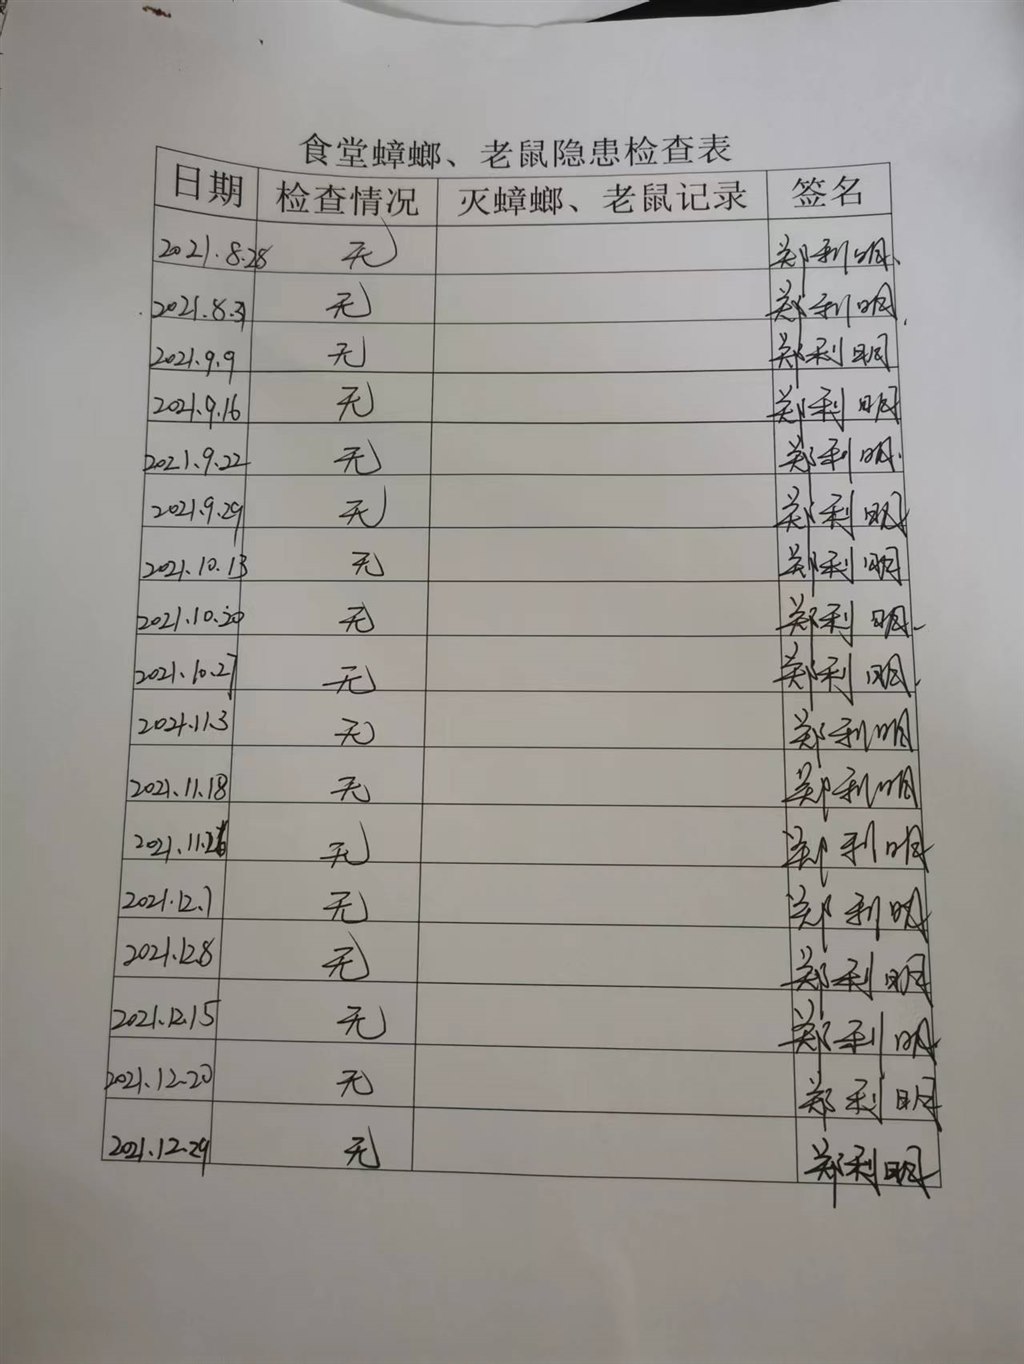 食堂蟑螂、老鼠隐患检查表
日期 检查情况 灭蟑螂、老鼠记录 签名
2021.8.28 无 郑利明
2021.8.31 无 郑利明
2021.9.9 无 郑利明
2021.9.16 无 郑利明
2021.9.22 无 郑利明
2021.9.29 无 郑利明
2021.10.13 无 郑利明
2021.10.20 无 郑利明
2021.10.27 无 郑利明
2021.11.3 无 郑利明
2021.11.18 无 郑利明
2021.11.26 无 郑利明
2021.12.1 无 郑利明
2021.12.8 无 郑利明
2021.12.15 无 郑利明
2021.12.20 无 郑利明
2021.12.29 无 郑利明